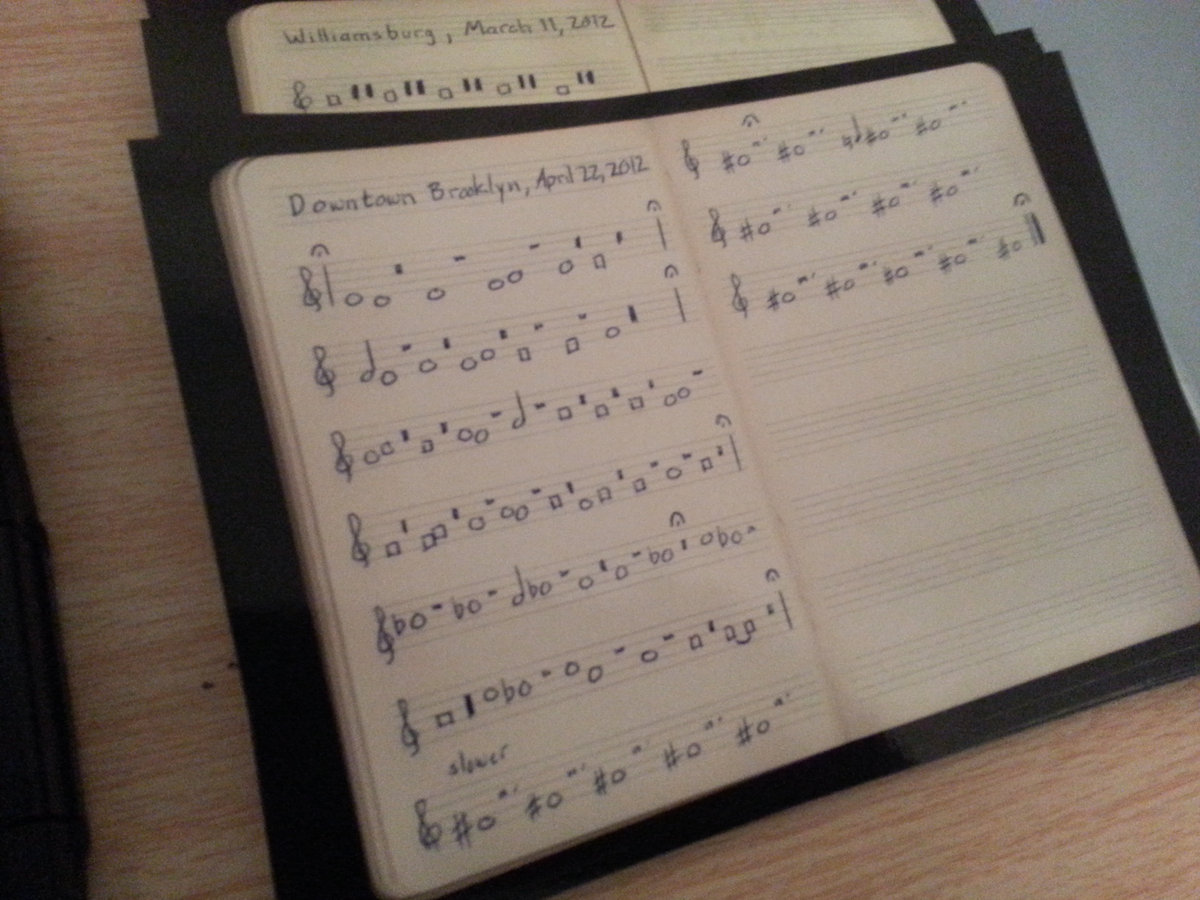 Williamsburg, March 11, 2012
Downtown Brooklyn, April 22, 2012
slower